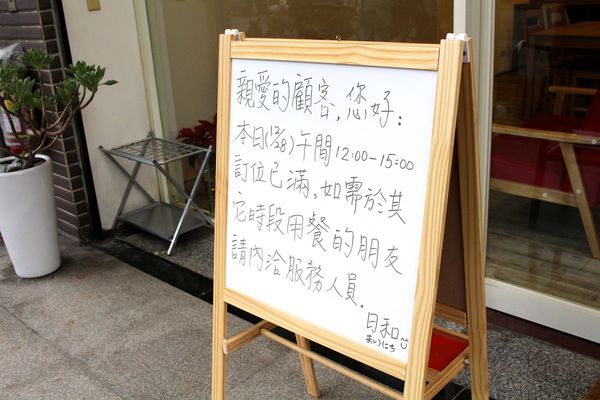 親愛的顧客,您好:
本日(12/8)午間12:00-15:00
訂位已滿,如需於其
它時段用餐的朋友
請內洽服務人員.
日和
まいにち